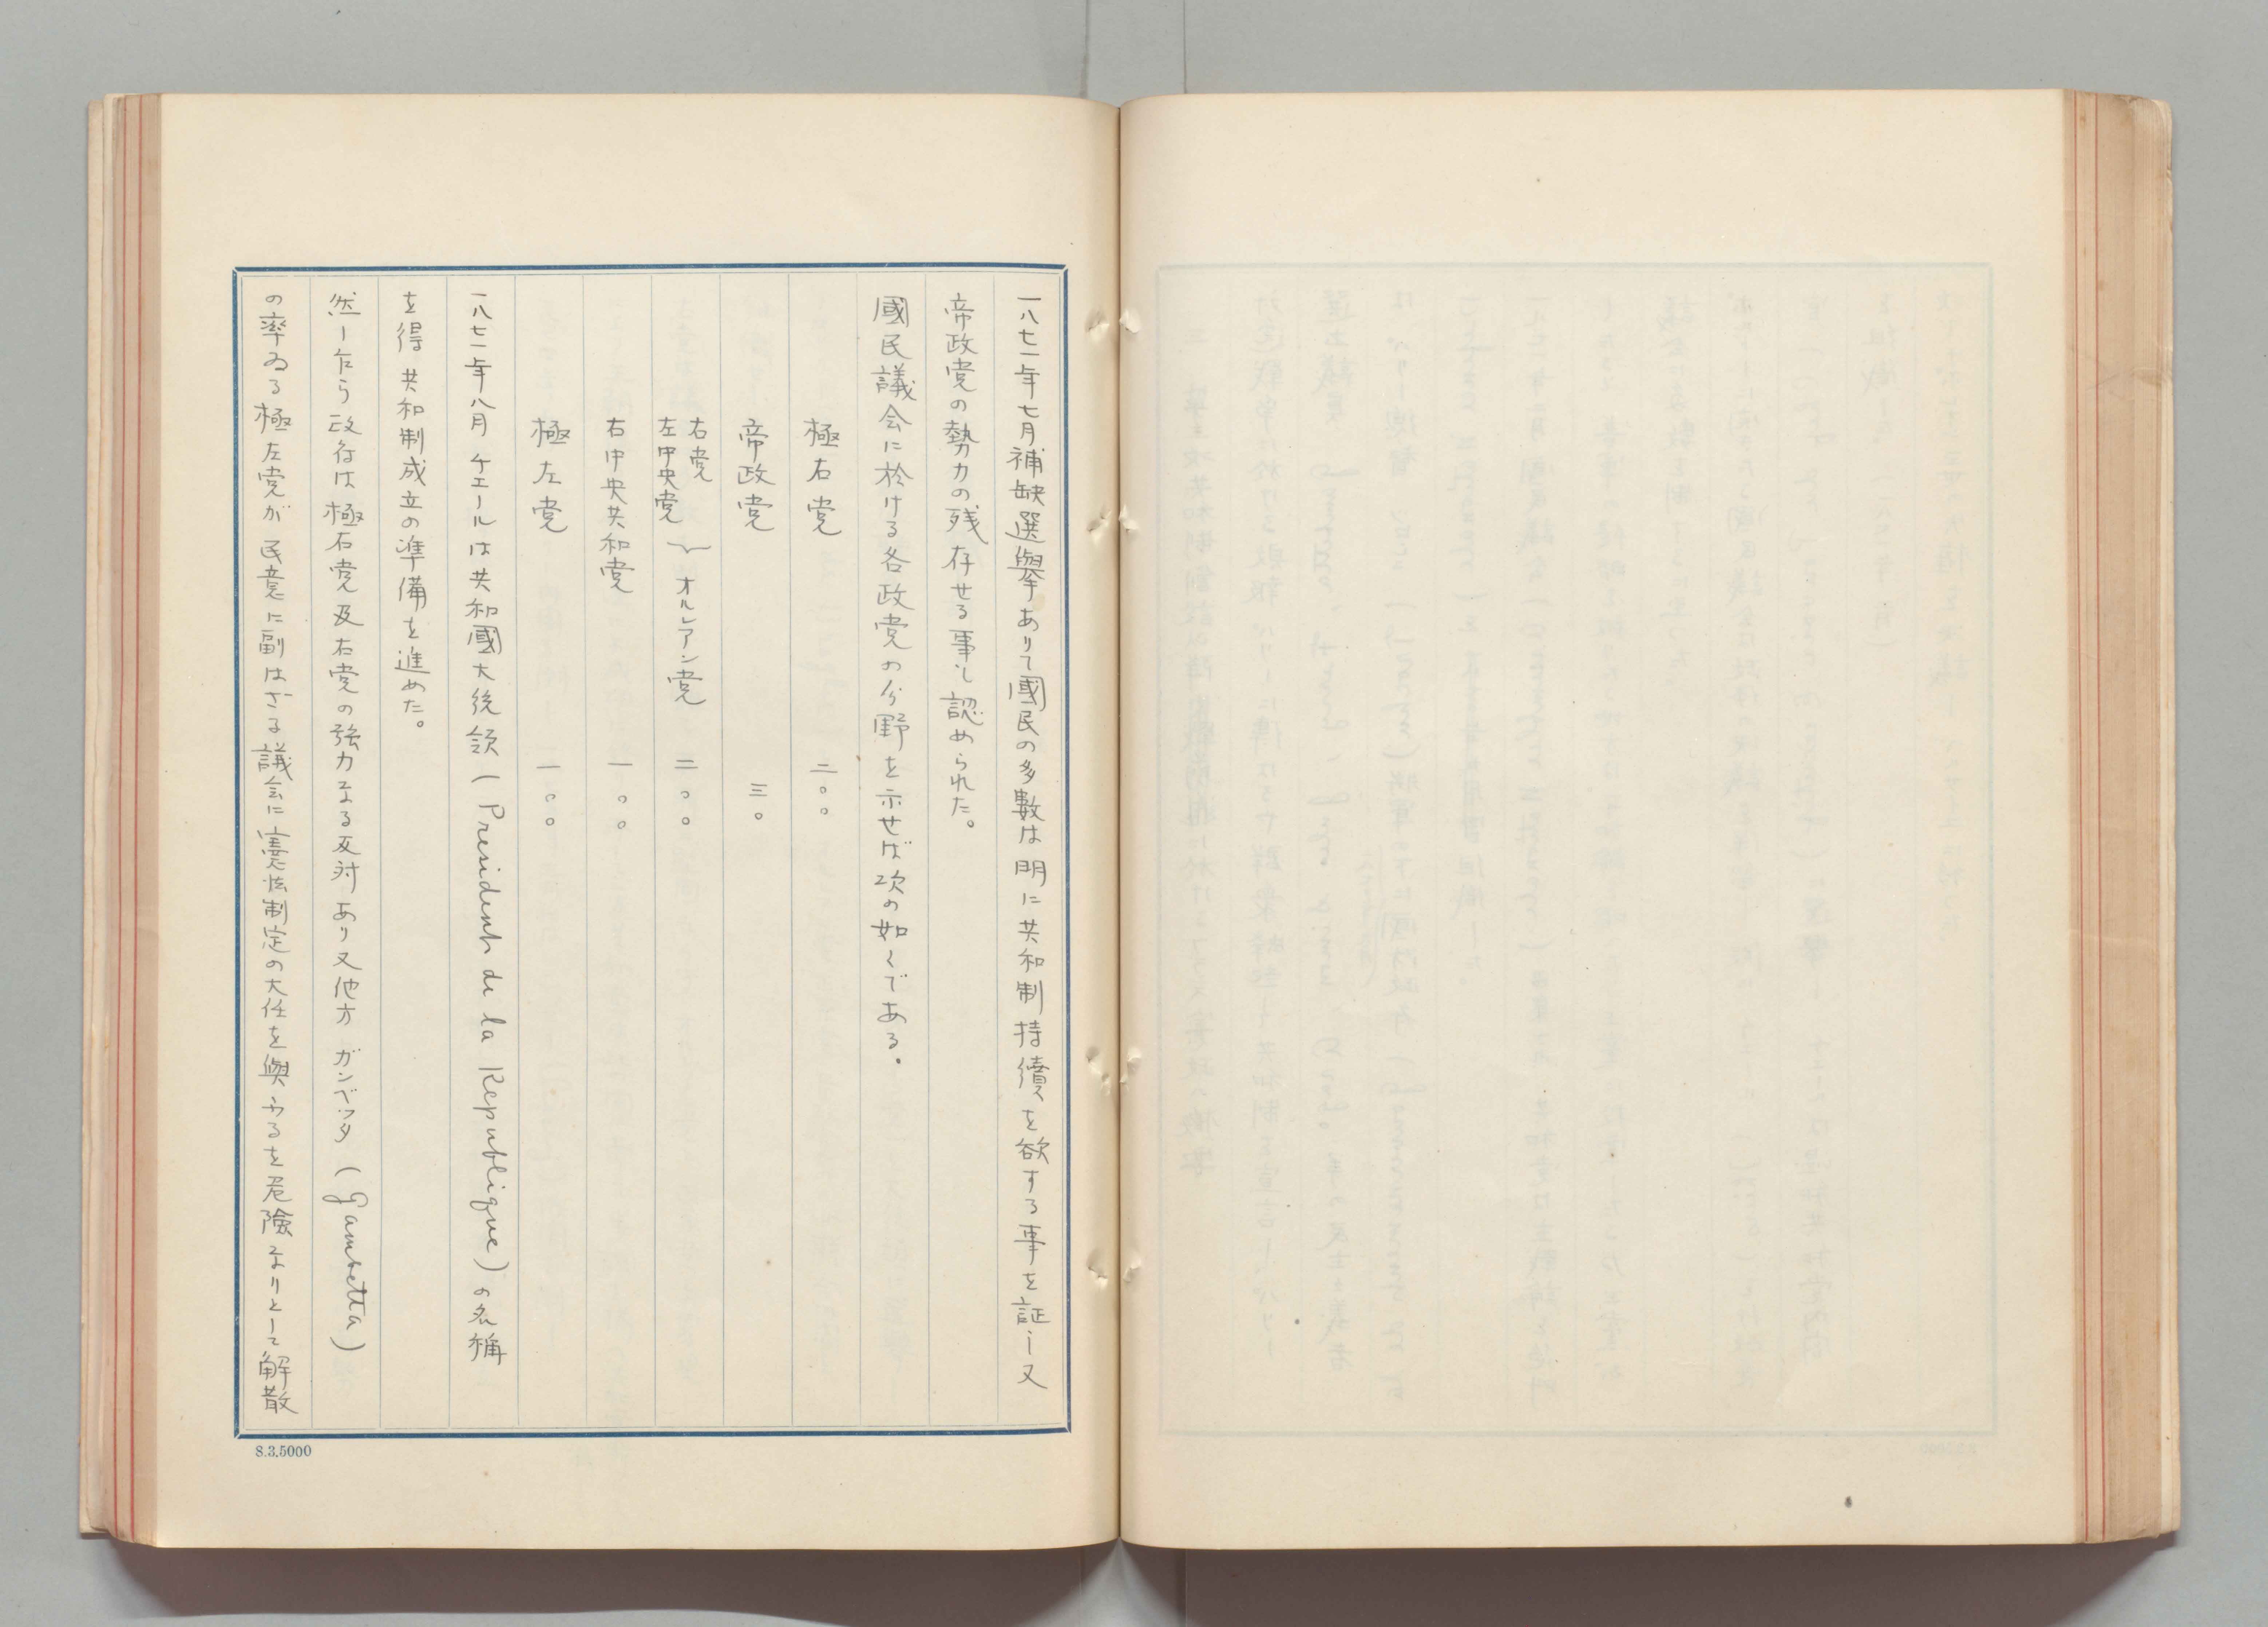 一八七一年七月補缺選擧ありて國民の多數は明に共和制持續を欲する事を証し又
帝政党の勢力の残存せる事も認められた。
國民議会に於ける各政党の分野を示せば次の如くである。
極右党 二〇〇
帝政党 三〇
右党
左中央党 } オルレアン党 二〇〇
右中央共和党 一〇〇
極左党 一〇〇
一八七一年八月チエールは共和國大統領(President de la Republique)の名稱
を得共和制成立の準備を進めた。
然し乍ら政府は極右党及右党の強力なる反対あり又他方ガンベツタ(Gambetta)
の率ゐる極左党が民意に副はざる議会に憲法制定の大任を與ふるを危險なりとして解散
8.3.5000